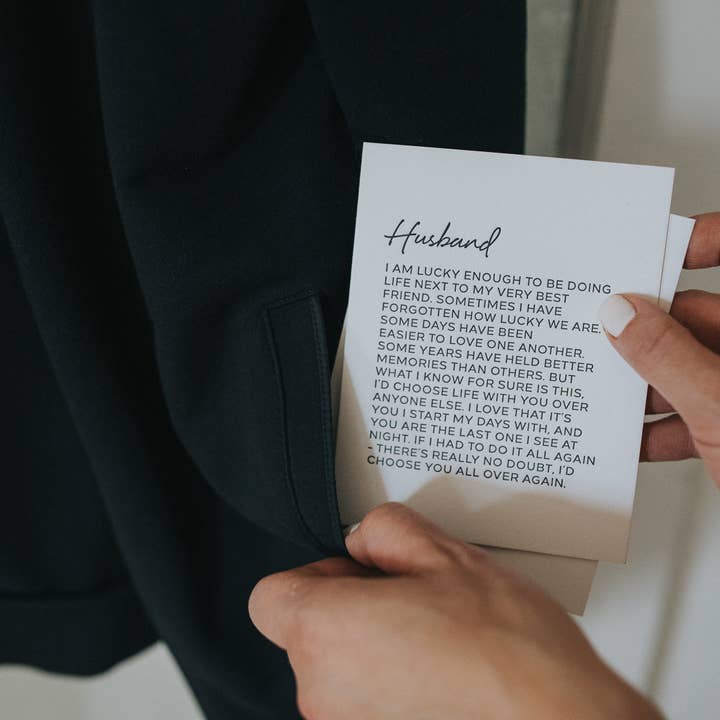 Husband
I AM LUCKY ENOUGH TO BE DOING
LIFE NEXT TO MY VERY BEST
FRIEND. SOMETIMES I HAVE
FORGOTTEN HOW LUCKY WE ARE.
SOME DAYS HAVE BEEN
EASIER TO LOVE ONE ANOTHER.
SOME YEARS HAVE HELD BETTER
MEMORIES THAN OTHERS. BUT
WHAT I KNOW FOR SURE IS THIS,
I'D CHOOSE LIFE WITH YOU OVER
ANYONE ELSE. I LOVE THAT IT'S
YOU I START MY DAYS WITH, AND
YOU ARE THE LAST ONE I SEE AT
NIGHT. IF I HAD TO DO IT ALL AGAIN
- THERE'S REALLY NO DOUBT, I'D
CHOOSE YOU ALL OVER AGAIN.